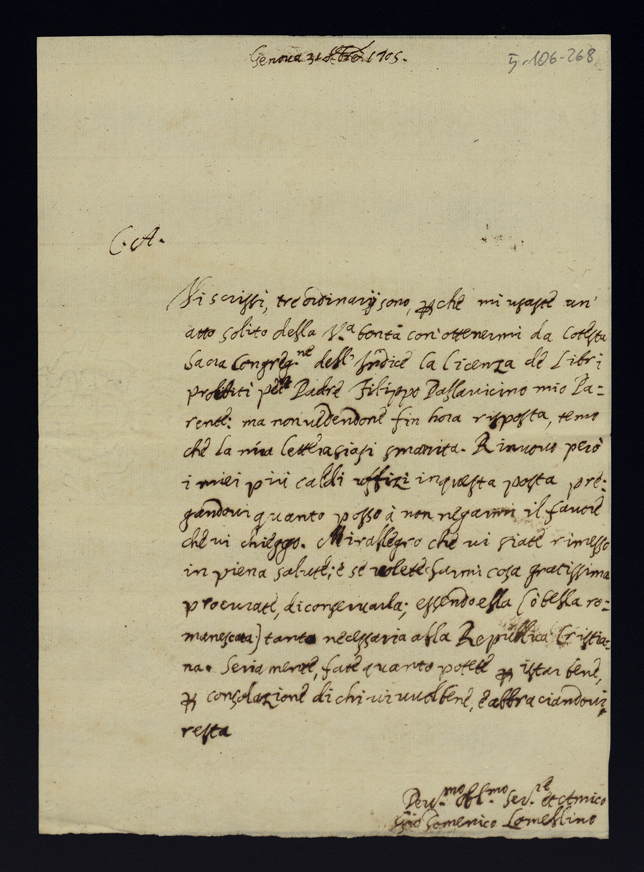 Genova 31 1705.
5-106-268
C. A.
Vi scrissi, tre ordinarij sono, che mi usaste un'
atto solito della Va bontà con ottenermi da cotesta
Sacra Congregne dell' Indice la licenza de Libri
proibiti Padre Filippo Pallavicino mio Pa=
rente: ma non vedendone fin hora risposta, temo
che la mia lettera siasi smarrita. Rinuovo però
i miei più caldi uffizi in questa posta pre=
gandovi quanto posso à non negarmi il favore
che vi chieggo. Mi rallegro che vi siate rimesso
in piena salute; e se volete farmi cosa gratissima
procurate, di conservarla; essendo ella (ò bella ro=
manescata) tanto necessaria alla Republica Cristia=
na. Seriamente, fate quanto potete istar bene,
consolazione di chi vi vuol bene, e abbracciandovi,
resto
Devmo Oblmo Serre et Amico
Gio Domenico Lomellino